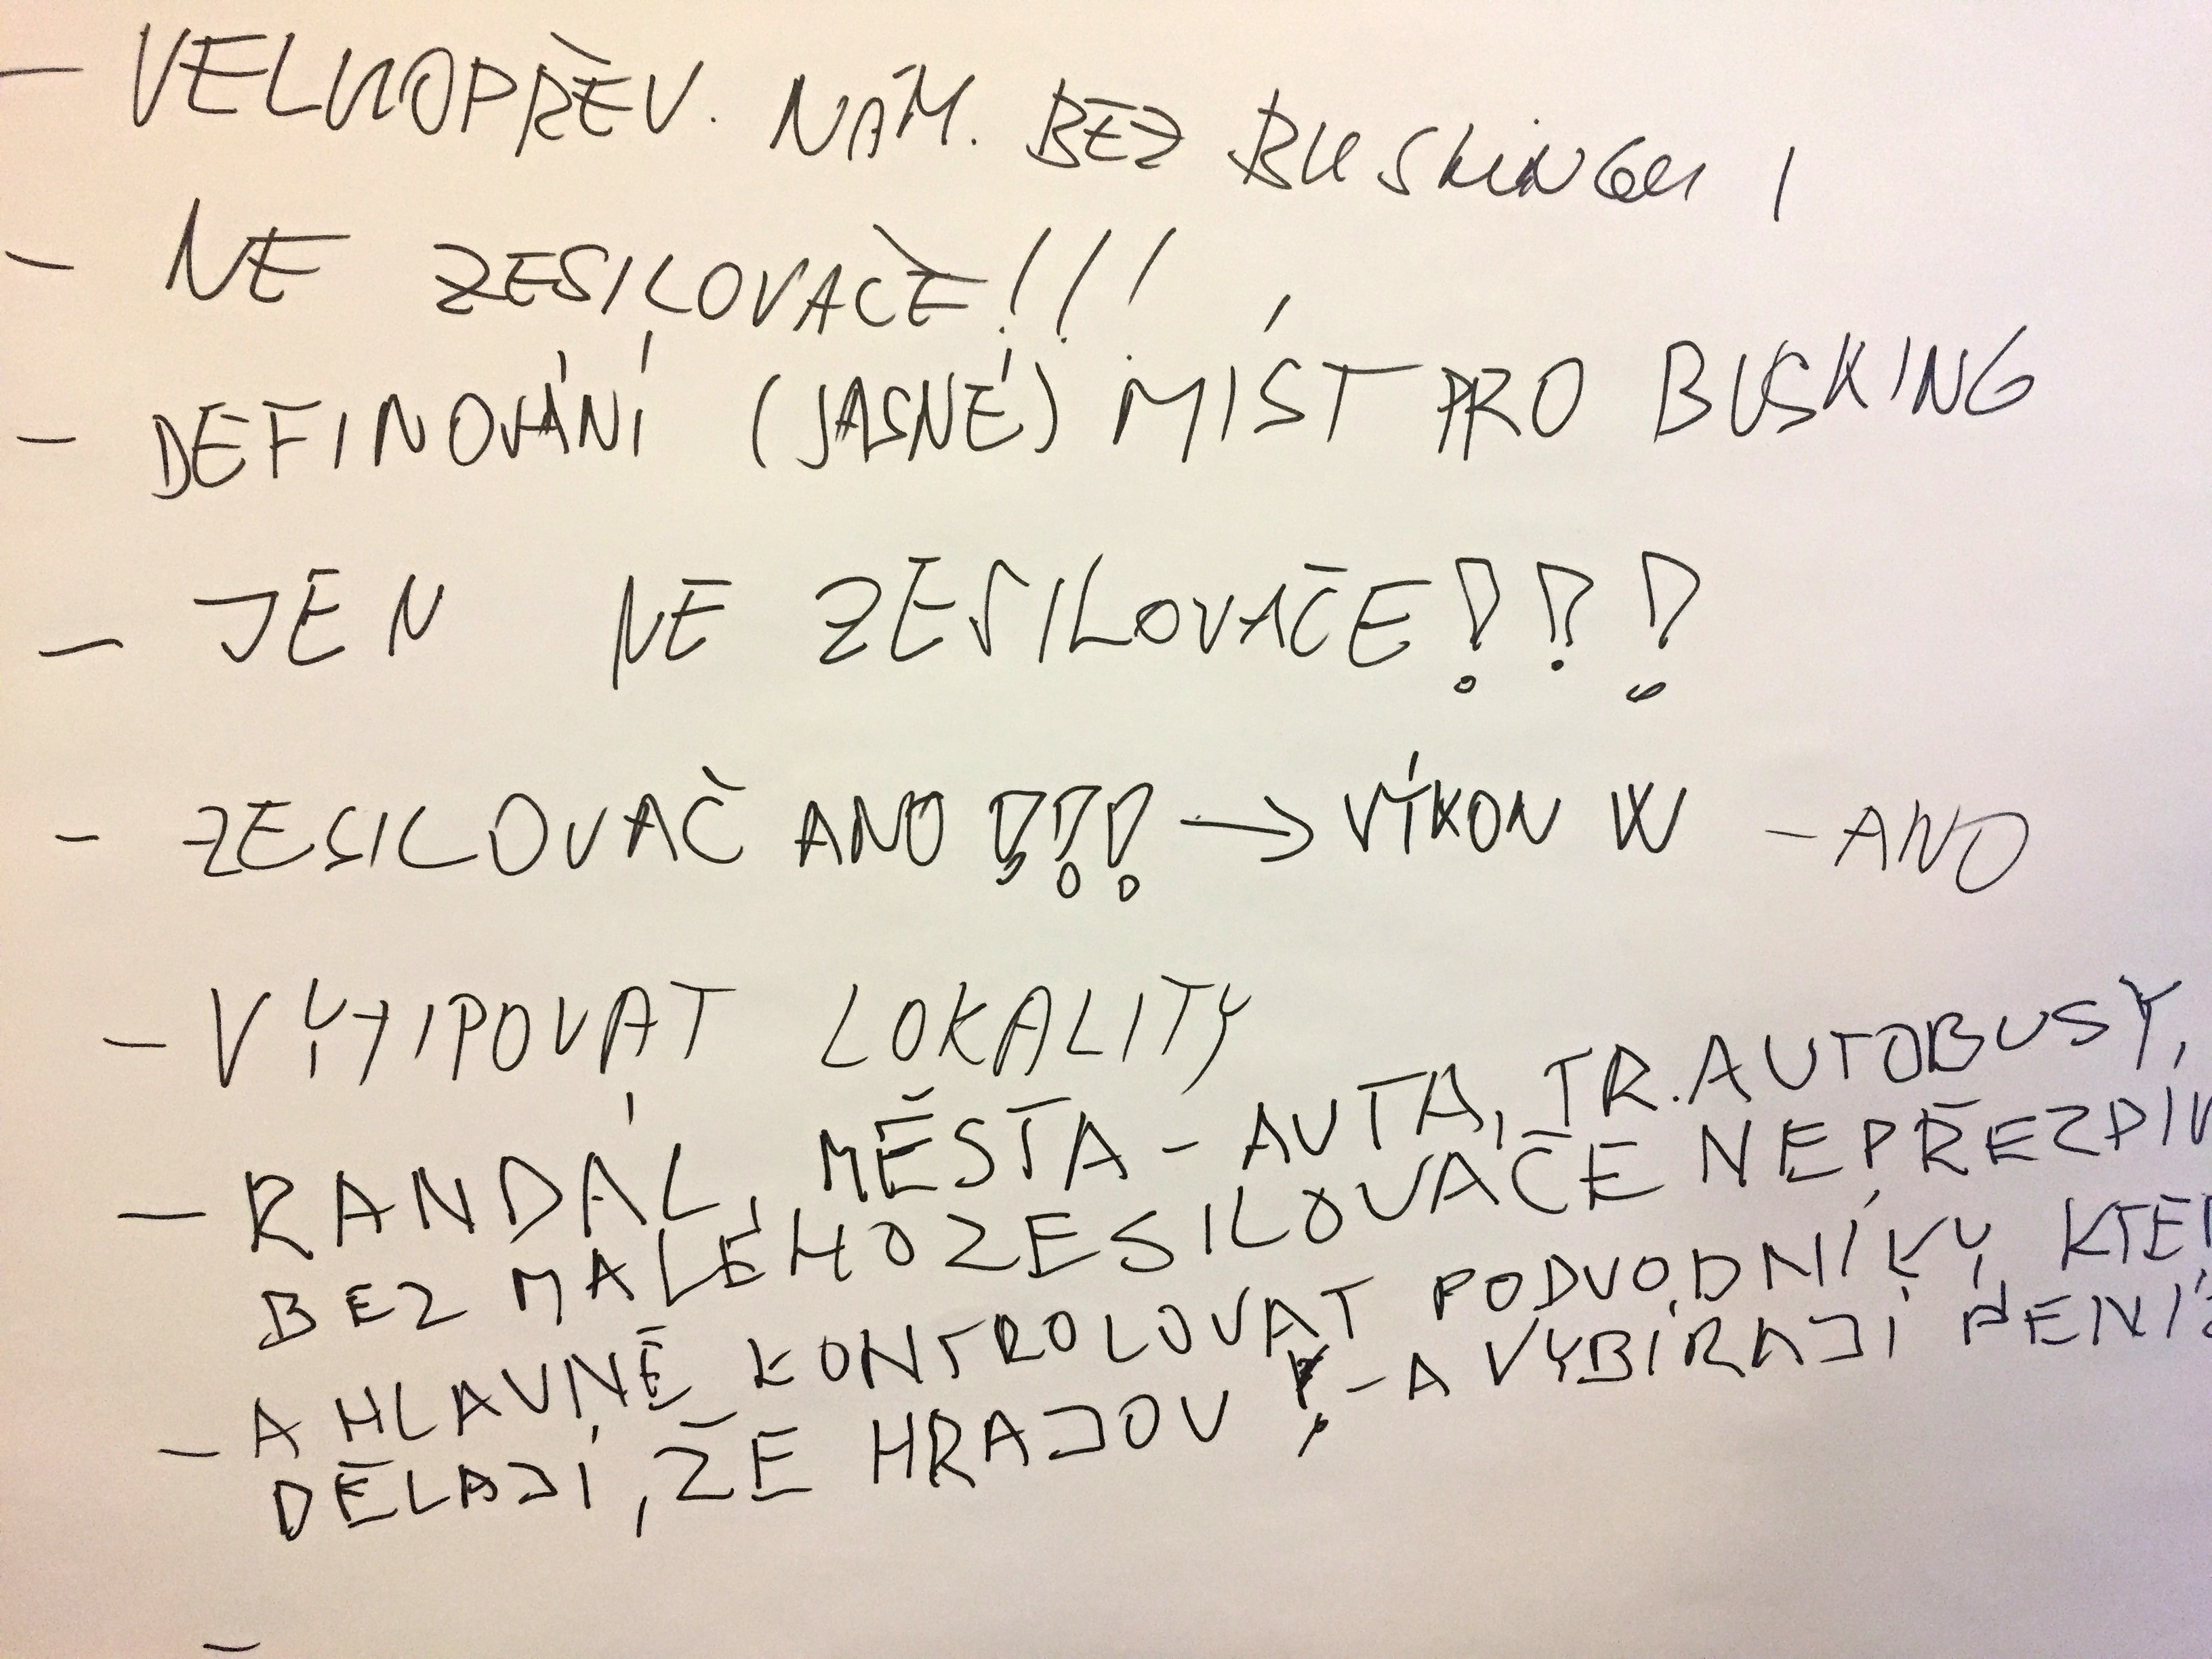 - VELKOPŘEV. NÁM. BEZ BUSKINGU !
- NE ZESILOVAČE!!!
- DEFINOVÁNÍ (JASNÉ) MÍST PRO BUSKING
- JEN NE ZESILOVAČE!!!
- ZESILOVAČ ANO !!! → VÝKON W - ANO
- VYTIPOVAT LOKALITY
- RANDÁL MĚSTA - AUTA, TR. AUTOBUSY,
BEZ MALÉHO ZESILOVAČE NEPŘEZPÍV
- A HLAVNĚ KONTROLOVAT PODVODNÍKY, KTEŘ
DĚLAJÍ, ŽE HRAJOU ! - A VYBÍRAJÍ PENÍZ
-